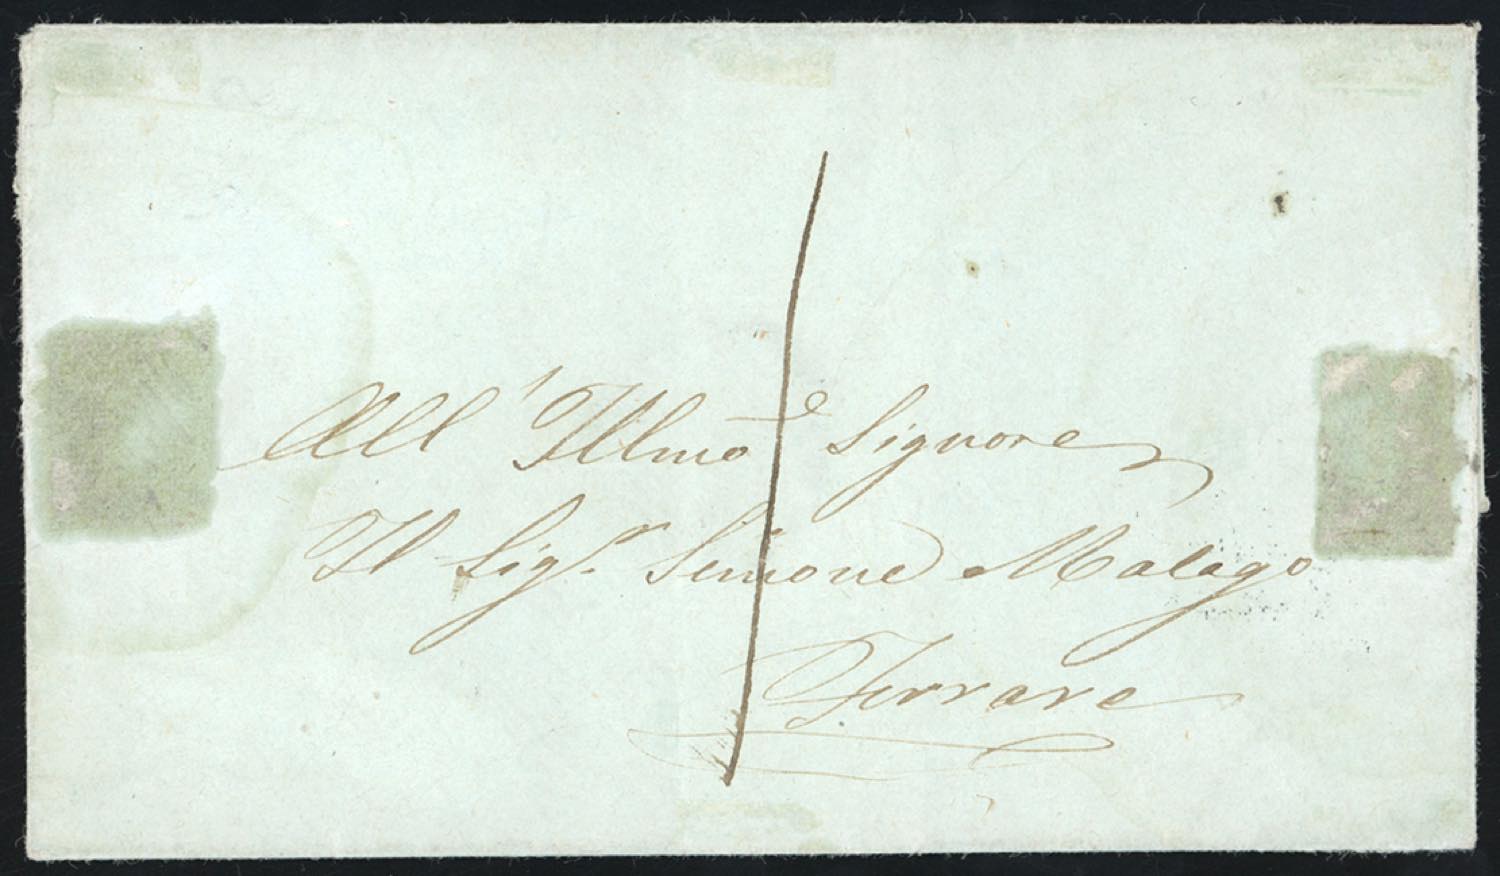 All' Illmo Signore
Il Sigr. Simone Malago
Ferrara